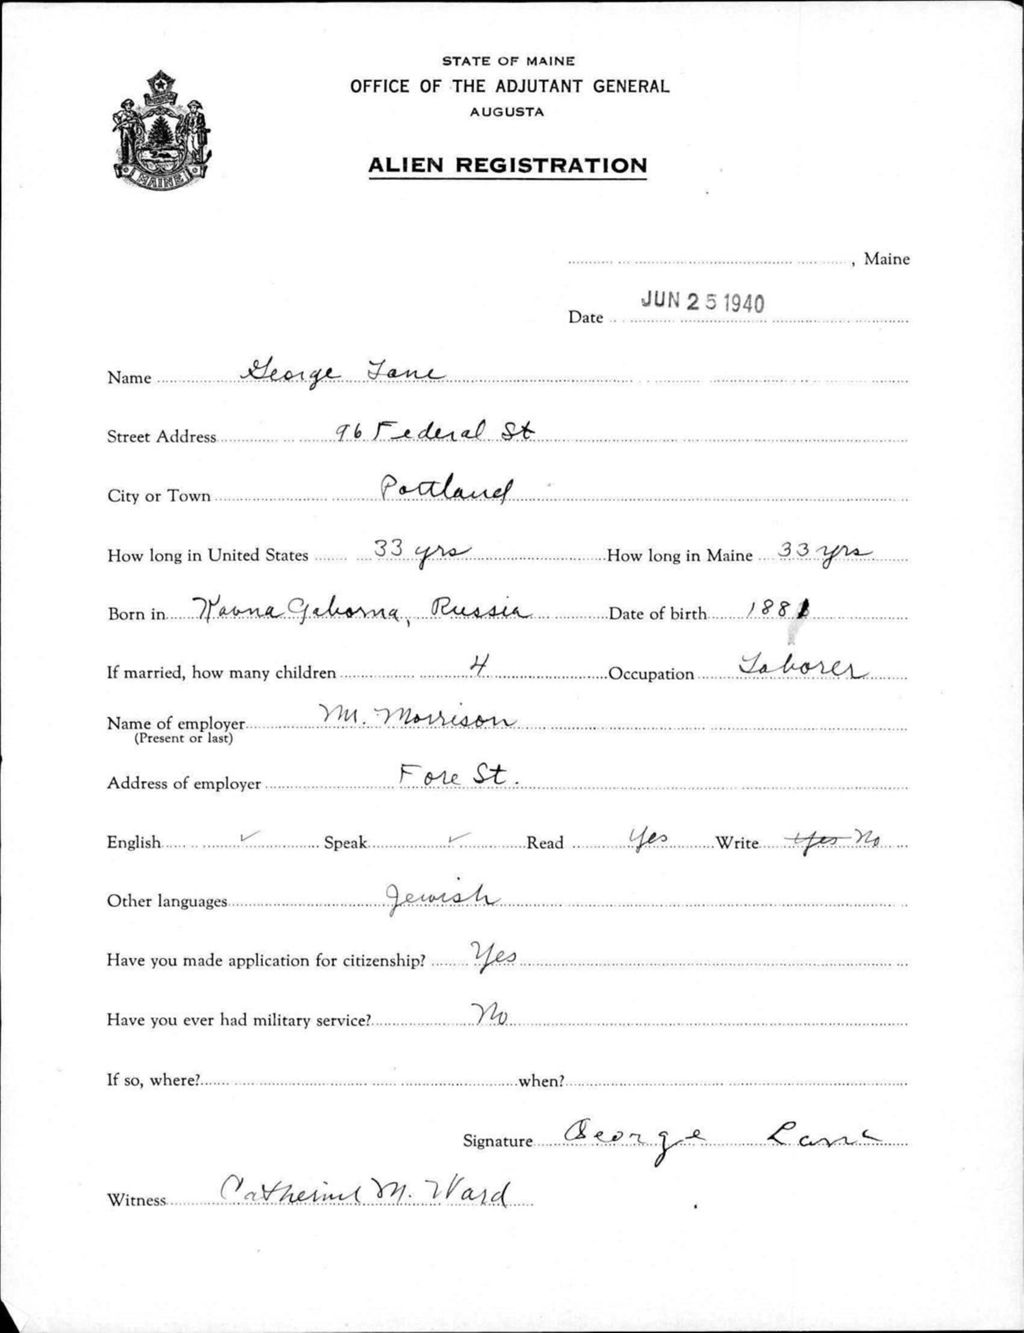 STATE OF MAINE
OFFICE OF THE ADJUTANT GENERAL
AUGUSTA
ALIEN REGISTRATION
MAINE
, Maine
Date JUN 25 1940
Name George Lane
Street Address 96 Federal St
City or Town Portland
How long in United States 33 yrs How long in Maine 33 yrs
Born in Kovna Gaborna, Russia Date of birth 1881
If married, how many children 4 Occupation Laborer
Name of employer Mr. Morrison
(Present or last)
Address of employer Fore St.
English ✓ Speak ✓ Read Yes Write Yes No
Other languages Jewish
Have you made application for citizenship? Yes
Have you ever had military service? No
If so, where? when?
Signature George Lane
Witness Catherine M. Ward